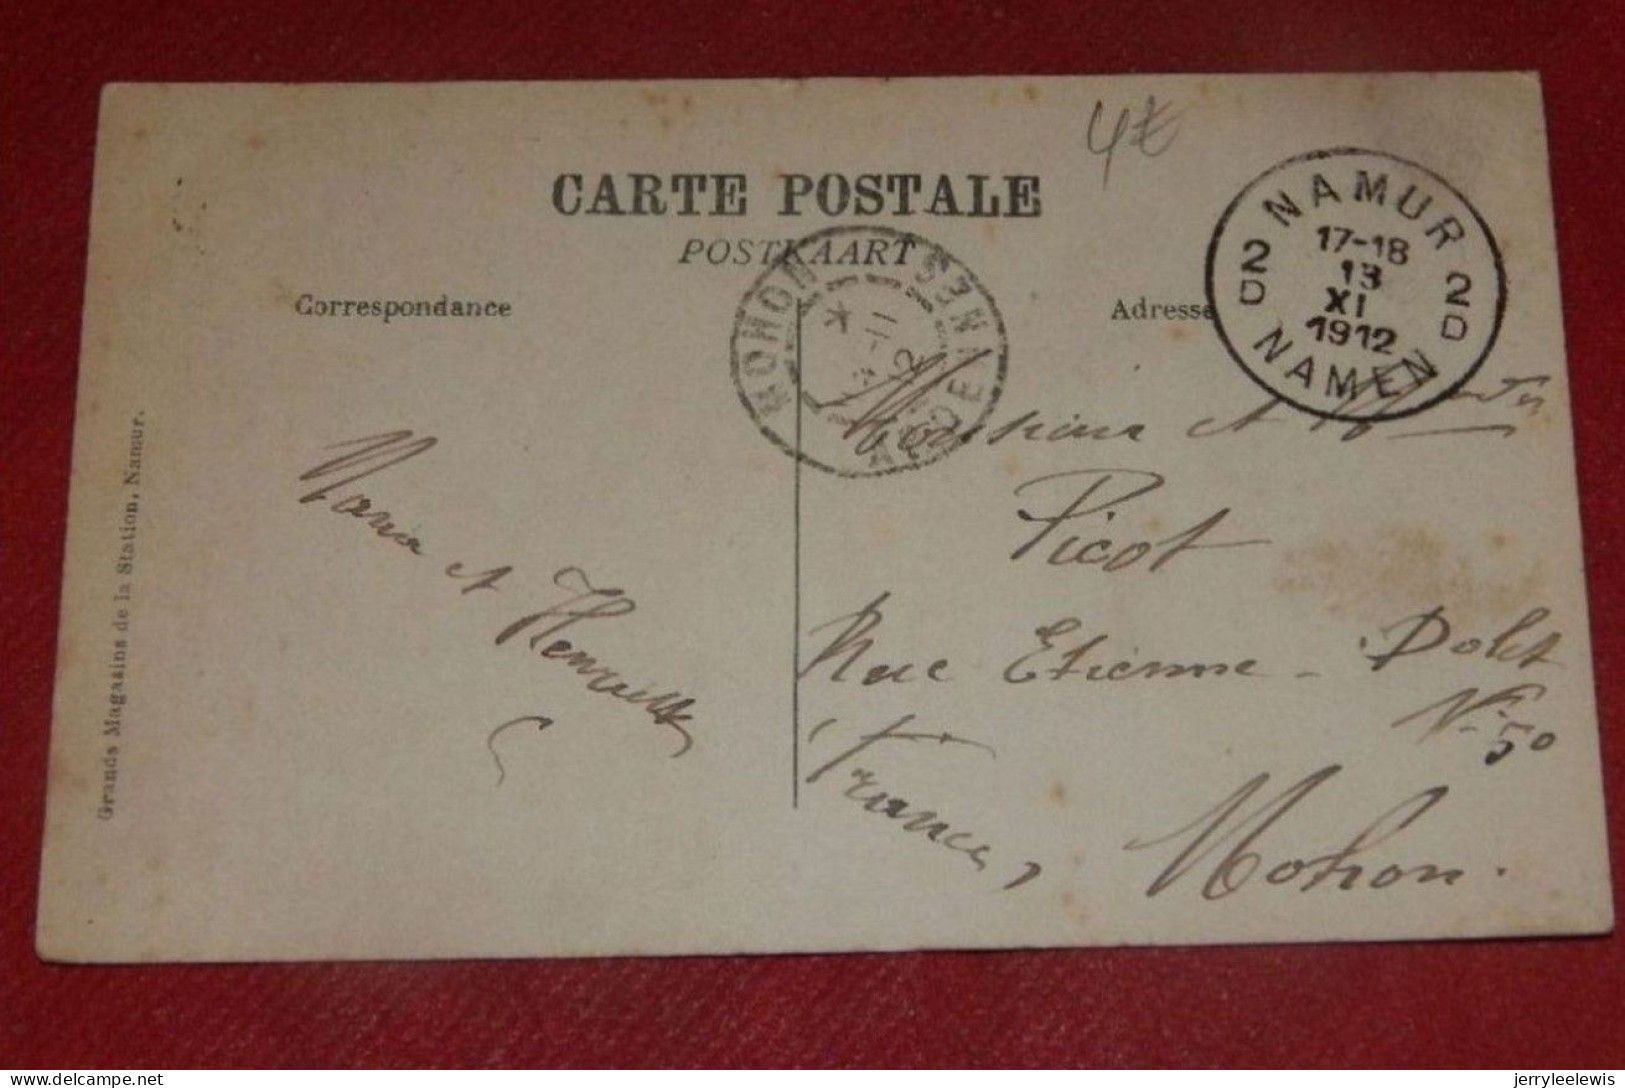 4€
CARTE POSTALE
POSTKAART
Correspondance
Adresse
NAMUR
2 17-18 2
D 13 D
XI
1912
NAMEN
MOHON
ARDENNES
*
-11
12
Monsieur et
Picot
Rue Etienne - Dolet
N° 50
France,
Mohon.
Maria et Henriette
Grands Magasins de la Station, Namur.
delcampe.net
jerryleelewis